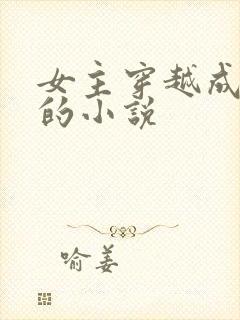 女主穿越成
的小说
喻姜